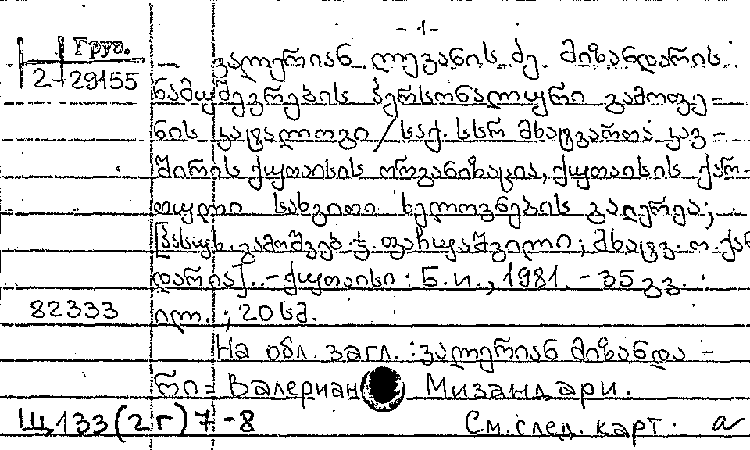 -1-
Груз.
2-29155
ვალერიან ლევანის ძე მიზანდარის
ნამუშევრების პერსონალური გამოფე-
ნის კატალოგი / საქ. სსრ მხატვართა კავ-
შირის ქუთაისის ორგანიზაცია, ქუთაისის ქარ-
თული სახვითი ხელოვნების გალერეა;
[პასუხ. გამოშვებ. ფარულაშვილი; მხატვ. ო. ქან
დარია]. - ქუთაისი: Б.и., 1981. - 35 გვ.:
82333
ილ.; 20 სმ.
На обл. загл.: ვალერიან მიზანდა-
რი = Валериан Мизандари.
Щ133(2Г)7-8
См. след. карт.